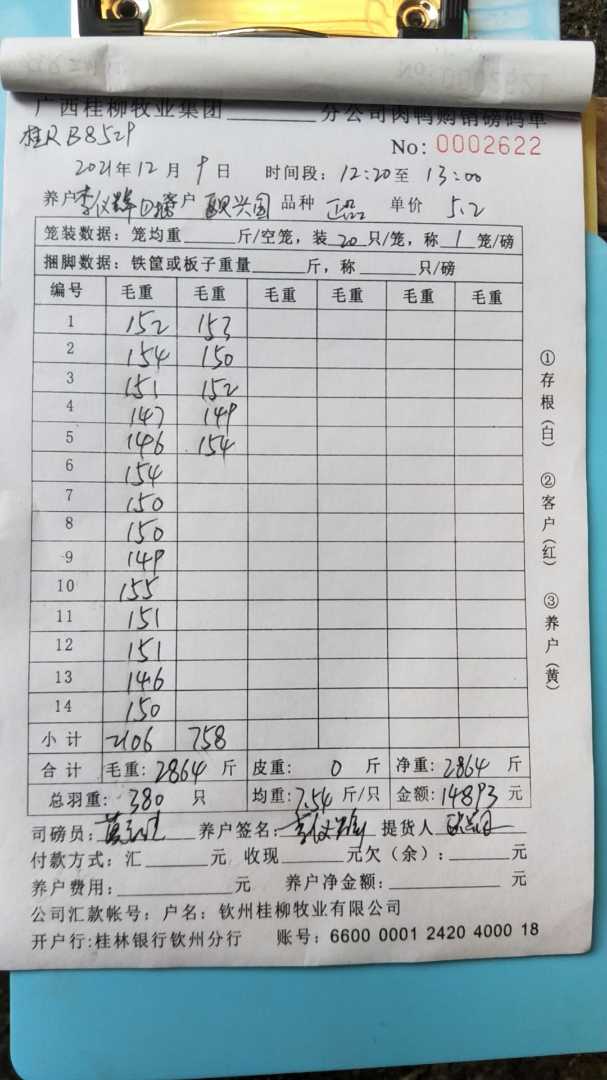 广西桂柳牧业集团______分公司肉鸭购销磅码单
桂R B8529
No: 0002622
2021年12月9日 时间段: 12:20至 13:00
养户 李仪辉 客户 欧兴国 品种 正品 单价 5.2
笼装数据: 笼均重______斤/空笼, 装 20 只/笼, 称 1 笼/磅
捆脚数据: 铁筐或板子重量______斤, 称______只/磅
编号 毛重 毛重 毛重 毛重 毛重 毛重
1 152 153
2 154 150
3 151 152
4 147 149
5 146 154
6 154
7 150
8 150
9 149
10 155
11 151
12 151
13 146
14 150
小计 2106 758
合计 毛重: 2864 斤 皮重: 0 斤 净重: 2864 斤
总羽重: 380 只 均重: 7.54 斤/只 金额: 14893 元
司磅员: 养户签名: 李仪辉 提货人
付款方式: 汇______元 收现______元欠(余): ______元
养户费用: ______元 养户净金额: ______元
公司汇款帐号: 户名: 钦州桂柳牧业有限公司
开户行:桂林银行钦州分行 账号: 6600 0001 2420 4000 18
①存根(白) ②客户(红) ③养户(黄)